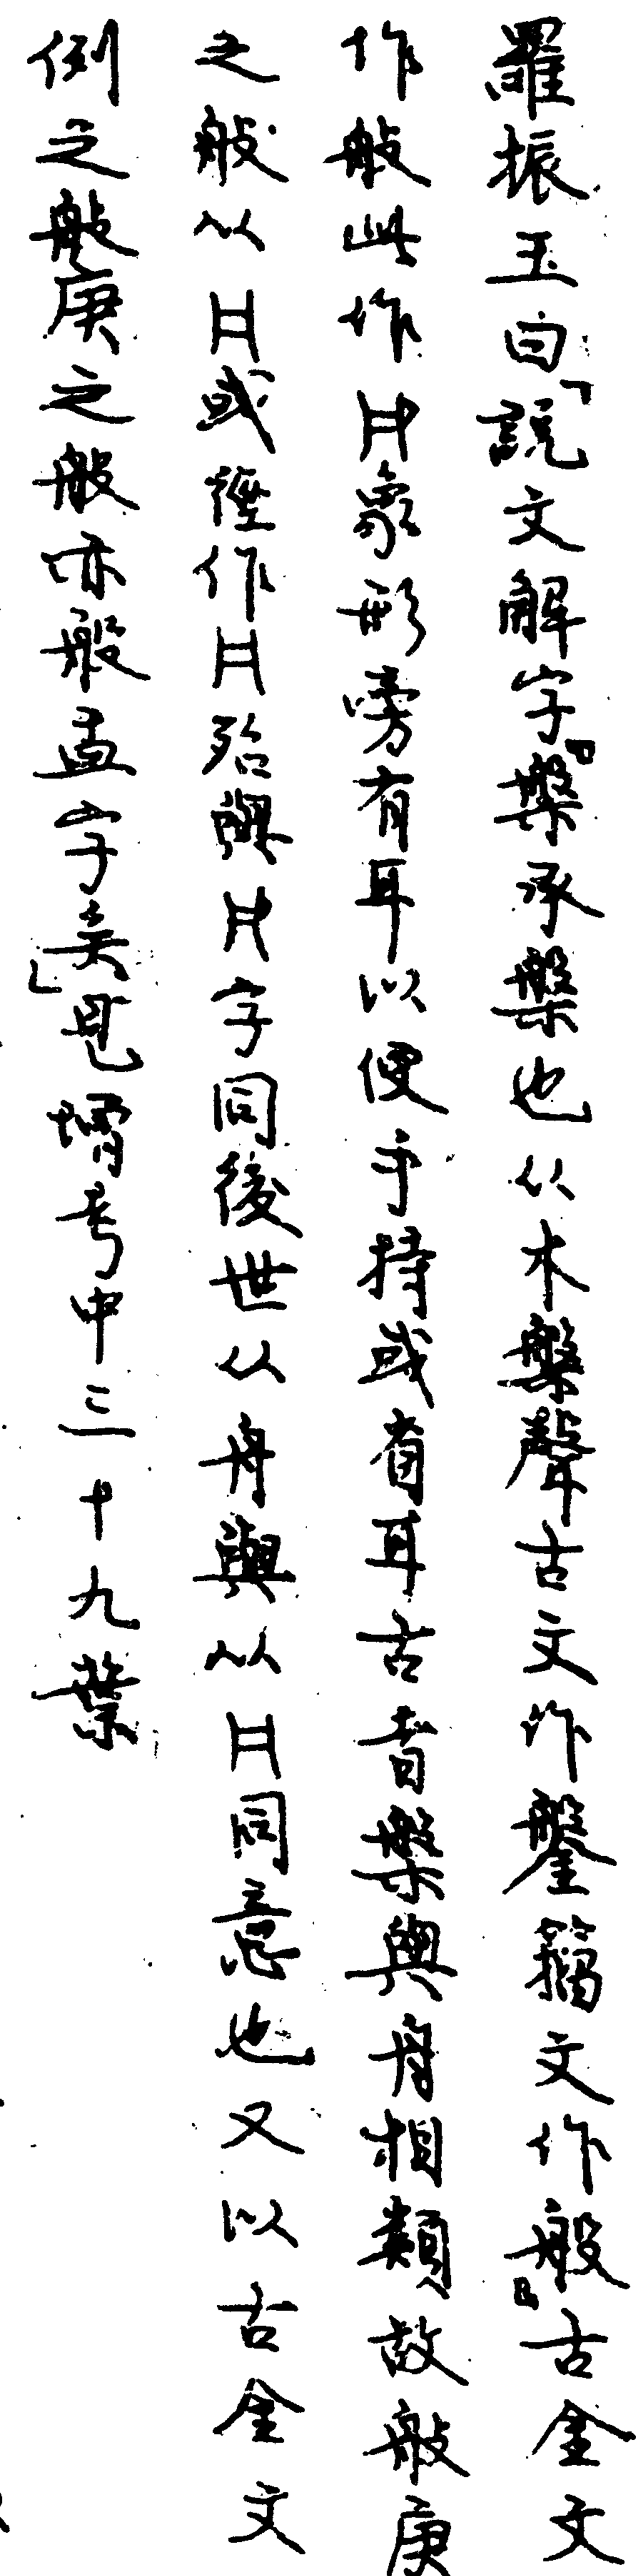 羅振玉曰「說文解字『槃承槃也从木般聲古文作鎜籀文作盤』古金文
作般此作𠙴象形旁有耳以便手持或省耳古者槃與舟相類故般庚
之般从或徑作殆與字同後世从舟與从同意也又以古金文
例之般庚之般亦般盂字矣」見增考中三十九葉